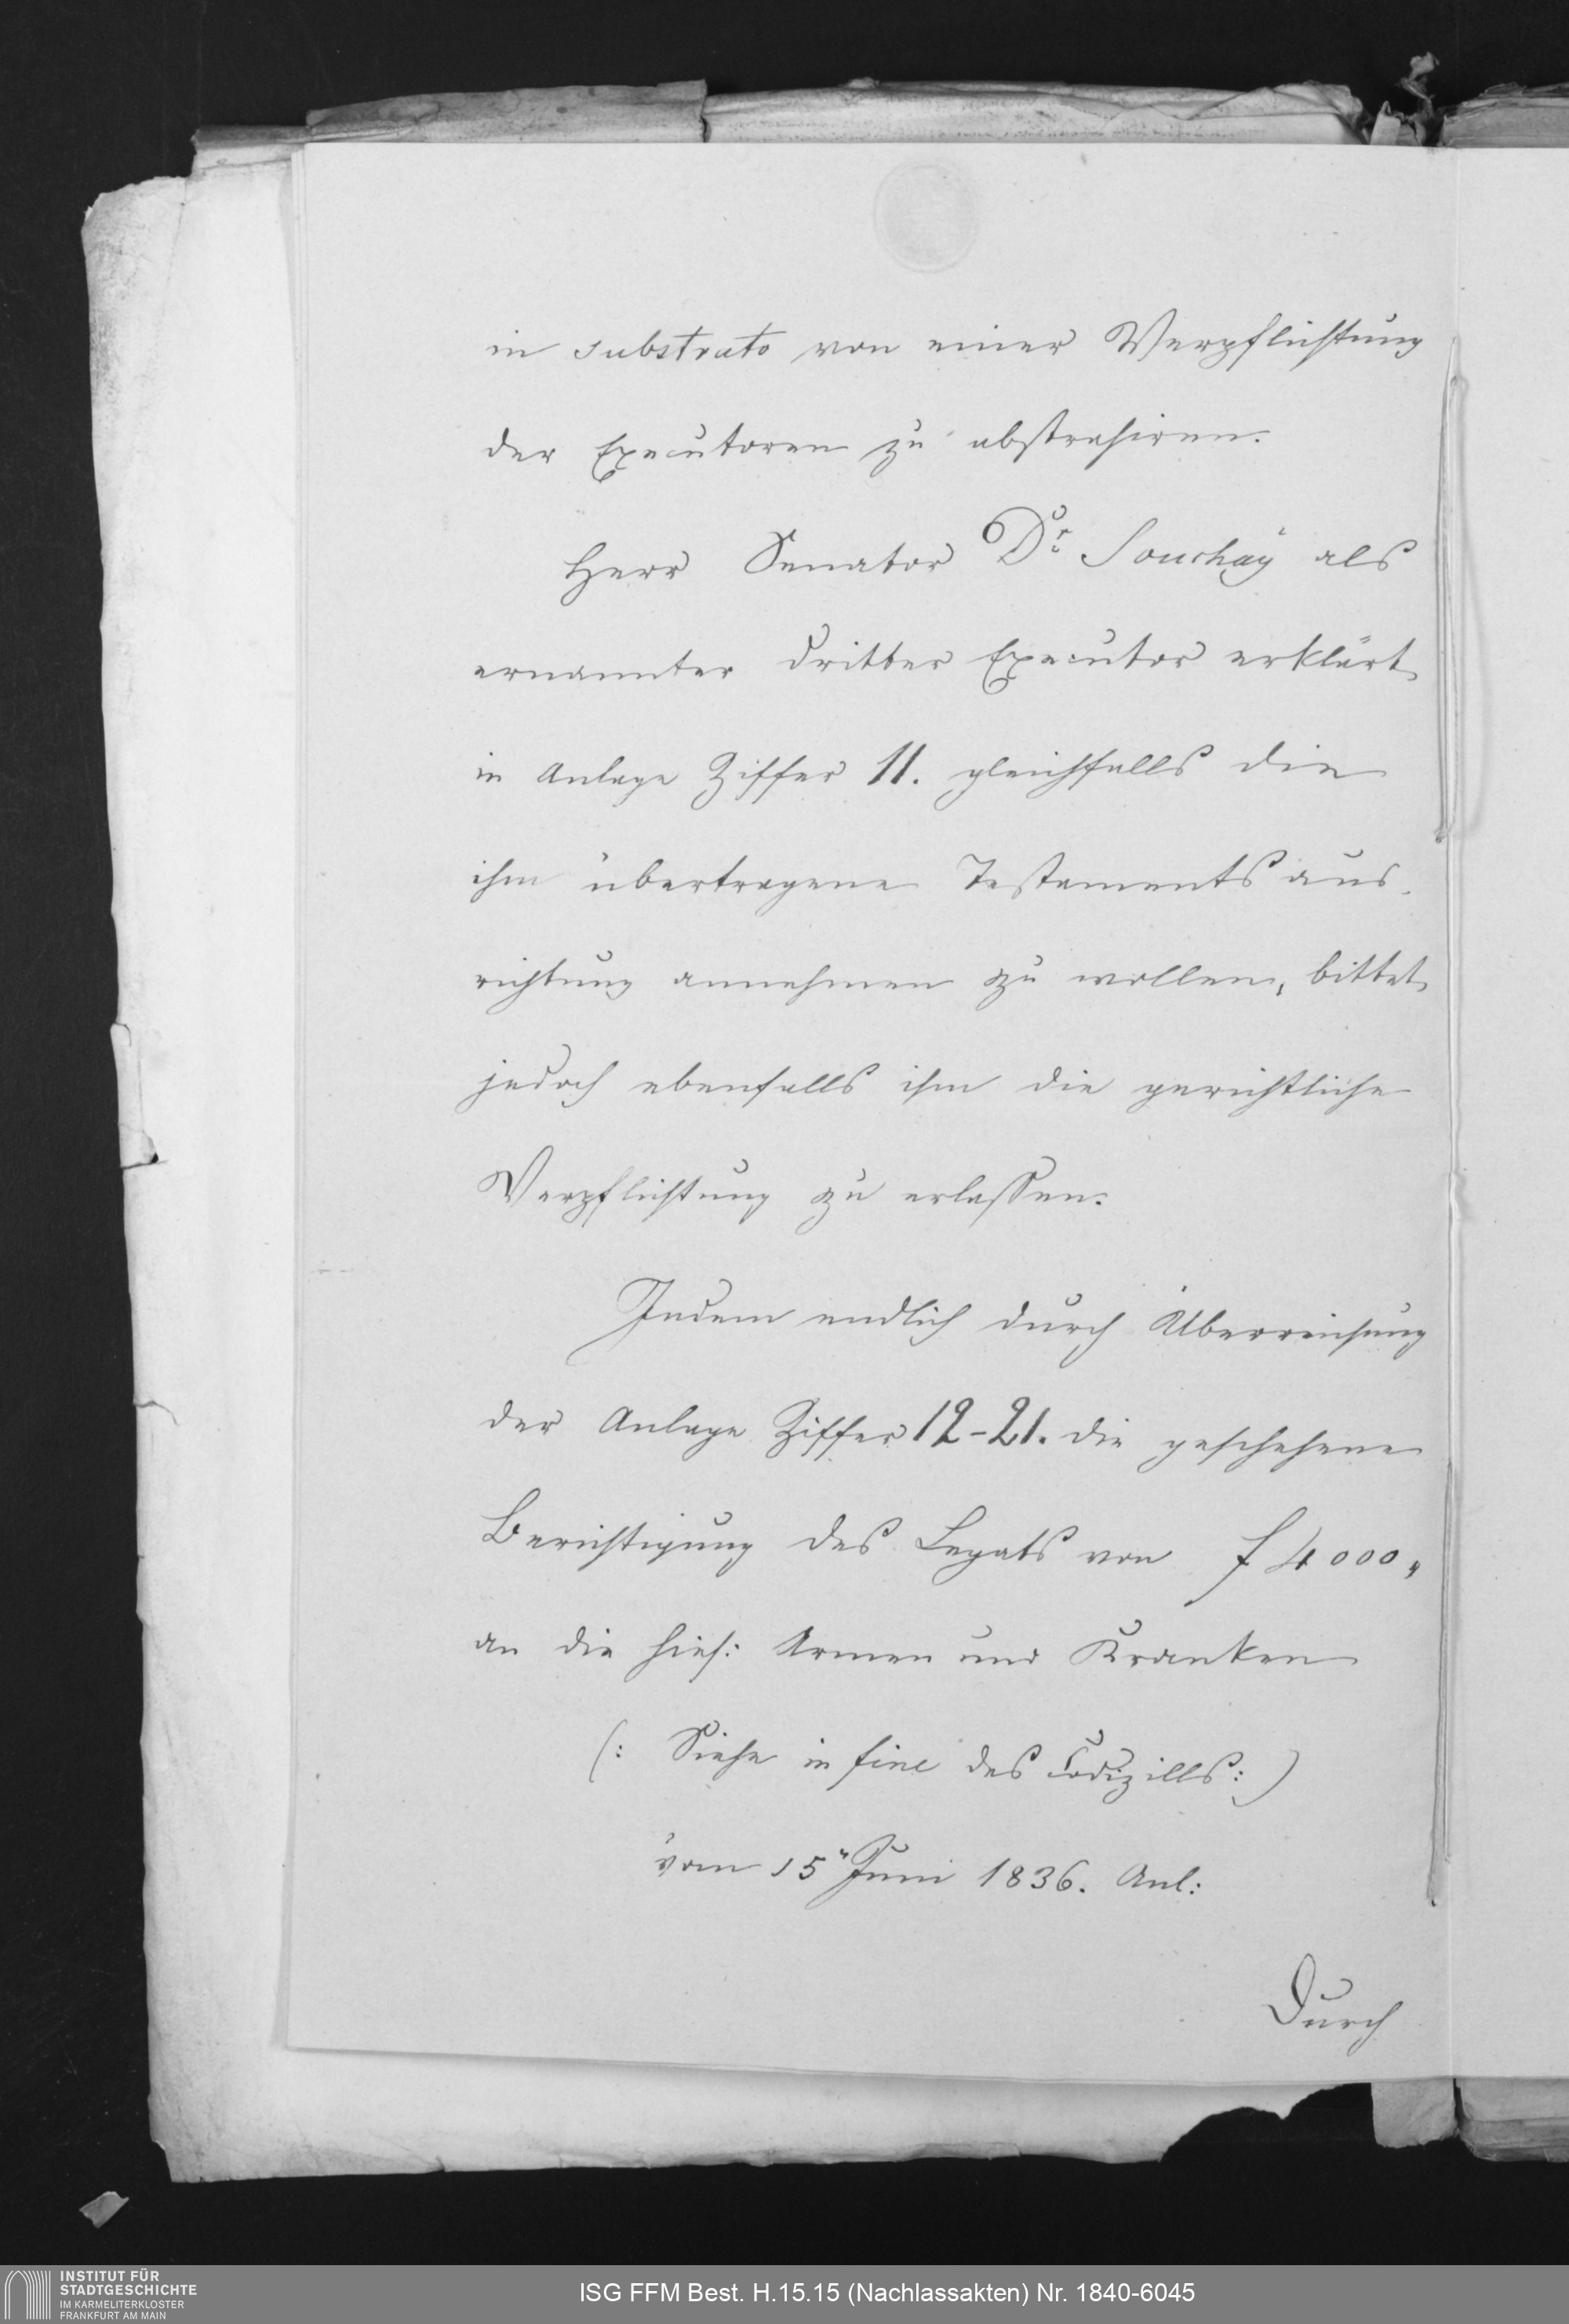 in substrato von einer Verpflichtung
der Executoren zu abstrahiren.
Herr Senator Dr. Souchay als
ernannter dritter Executor erklärt
in Anlage Ziffer 11. gleichfalls die
ihm übertragene Testamentsaus-
richtung annehmen zu wollen, bittet
jedoch ebenfalls ihm die gerichtliche
Verpflichtung zu erlassen.
Indem endlich durch Überreichung
der Anlage Ziffer 12-21. die geschehene
Berichtigung des Legats von f 4000,,
an die hies: Armen und Kranken
(: Siehe in fine des Codizills:)
vom 15" Juni 1836. Anl:
Durch
INSTITUT FÜR
STADTGESCHICHTE
IM KARMELITERKLOSTER
FRANKFURT AM MAIN
ISG FFM Best. H.15.15 (Nachlassakten) Nr. 1840-6045